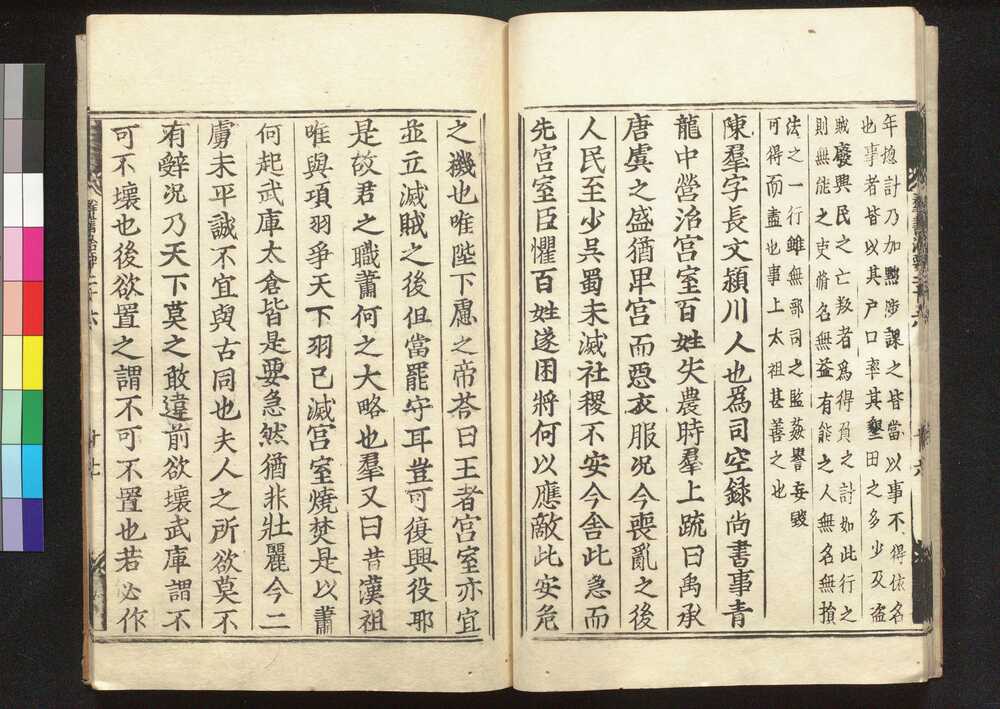 年揔計乃加黜陟課之皆當以事不得依名
也事者皆以其戸口率其墾田之多少及盗
賊癈興民之亡叛者為得負之計如此行之
則無能之吏脩名無益有能之人無名無損
法之一行雖無部司之監姦譽妄毀
可得而盡也事上太祖甚善之也
陳羣字長文潁川人也為司空録尚書事青
龍中營治宫室百姓失農時羣上疏曰禹承
唐虞之盛猶卑宫而惡衣服况今喪亂之後
人民至少吳蜀未滅社稷不安今舎此急而
先宫室臣懼百姓遂困將何以應敵此安危
之機也唯陛下慮之帝荅曰王者宫室亦宜
並立滅賊之後但當罷守耳豈可復興役耶
是故君之職蕭何之大略也羣又曰昔漢祖
唯與項羽爭天下羽已滅宫室燒焚是以蕭
何起武庫太倉皆是要急然猶非壯麗今二
虜未平誠不宜與古同也夫人之所欲莫不
有辭况乃天下莫之敢違前欲壞武庫謂不
可不壞也後欲置之謂不可不置也若必作
羣書治要二十六